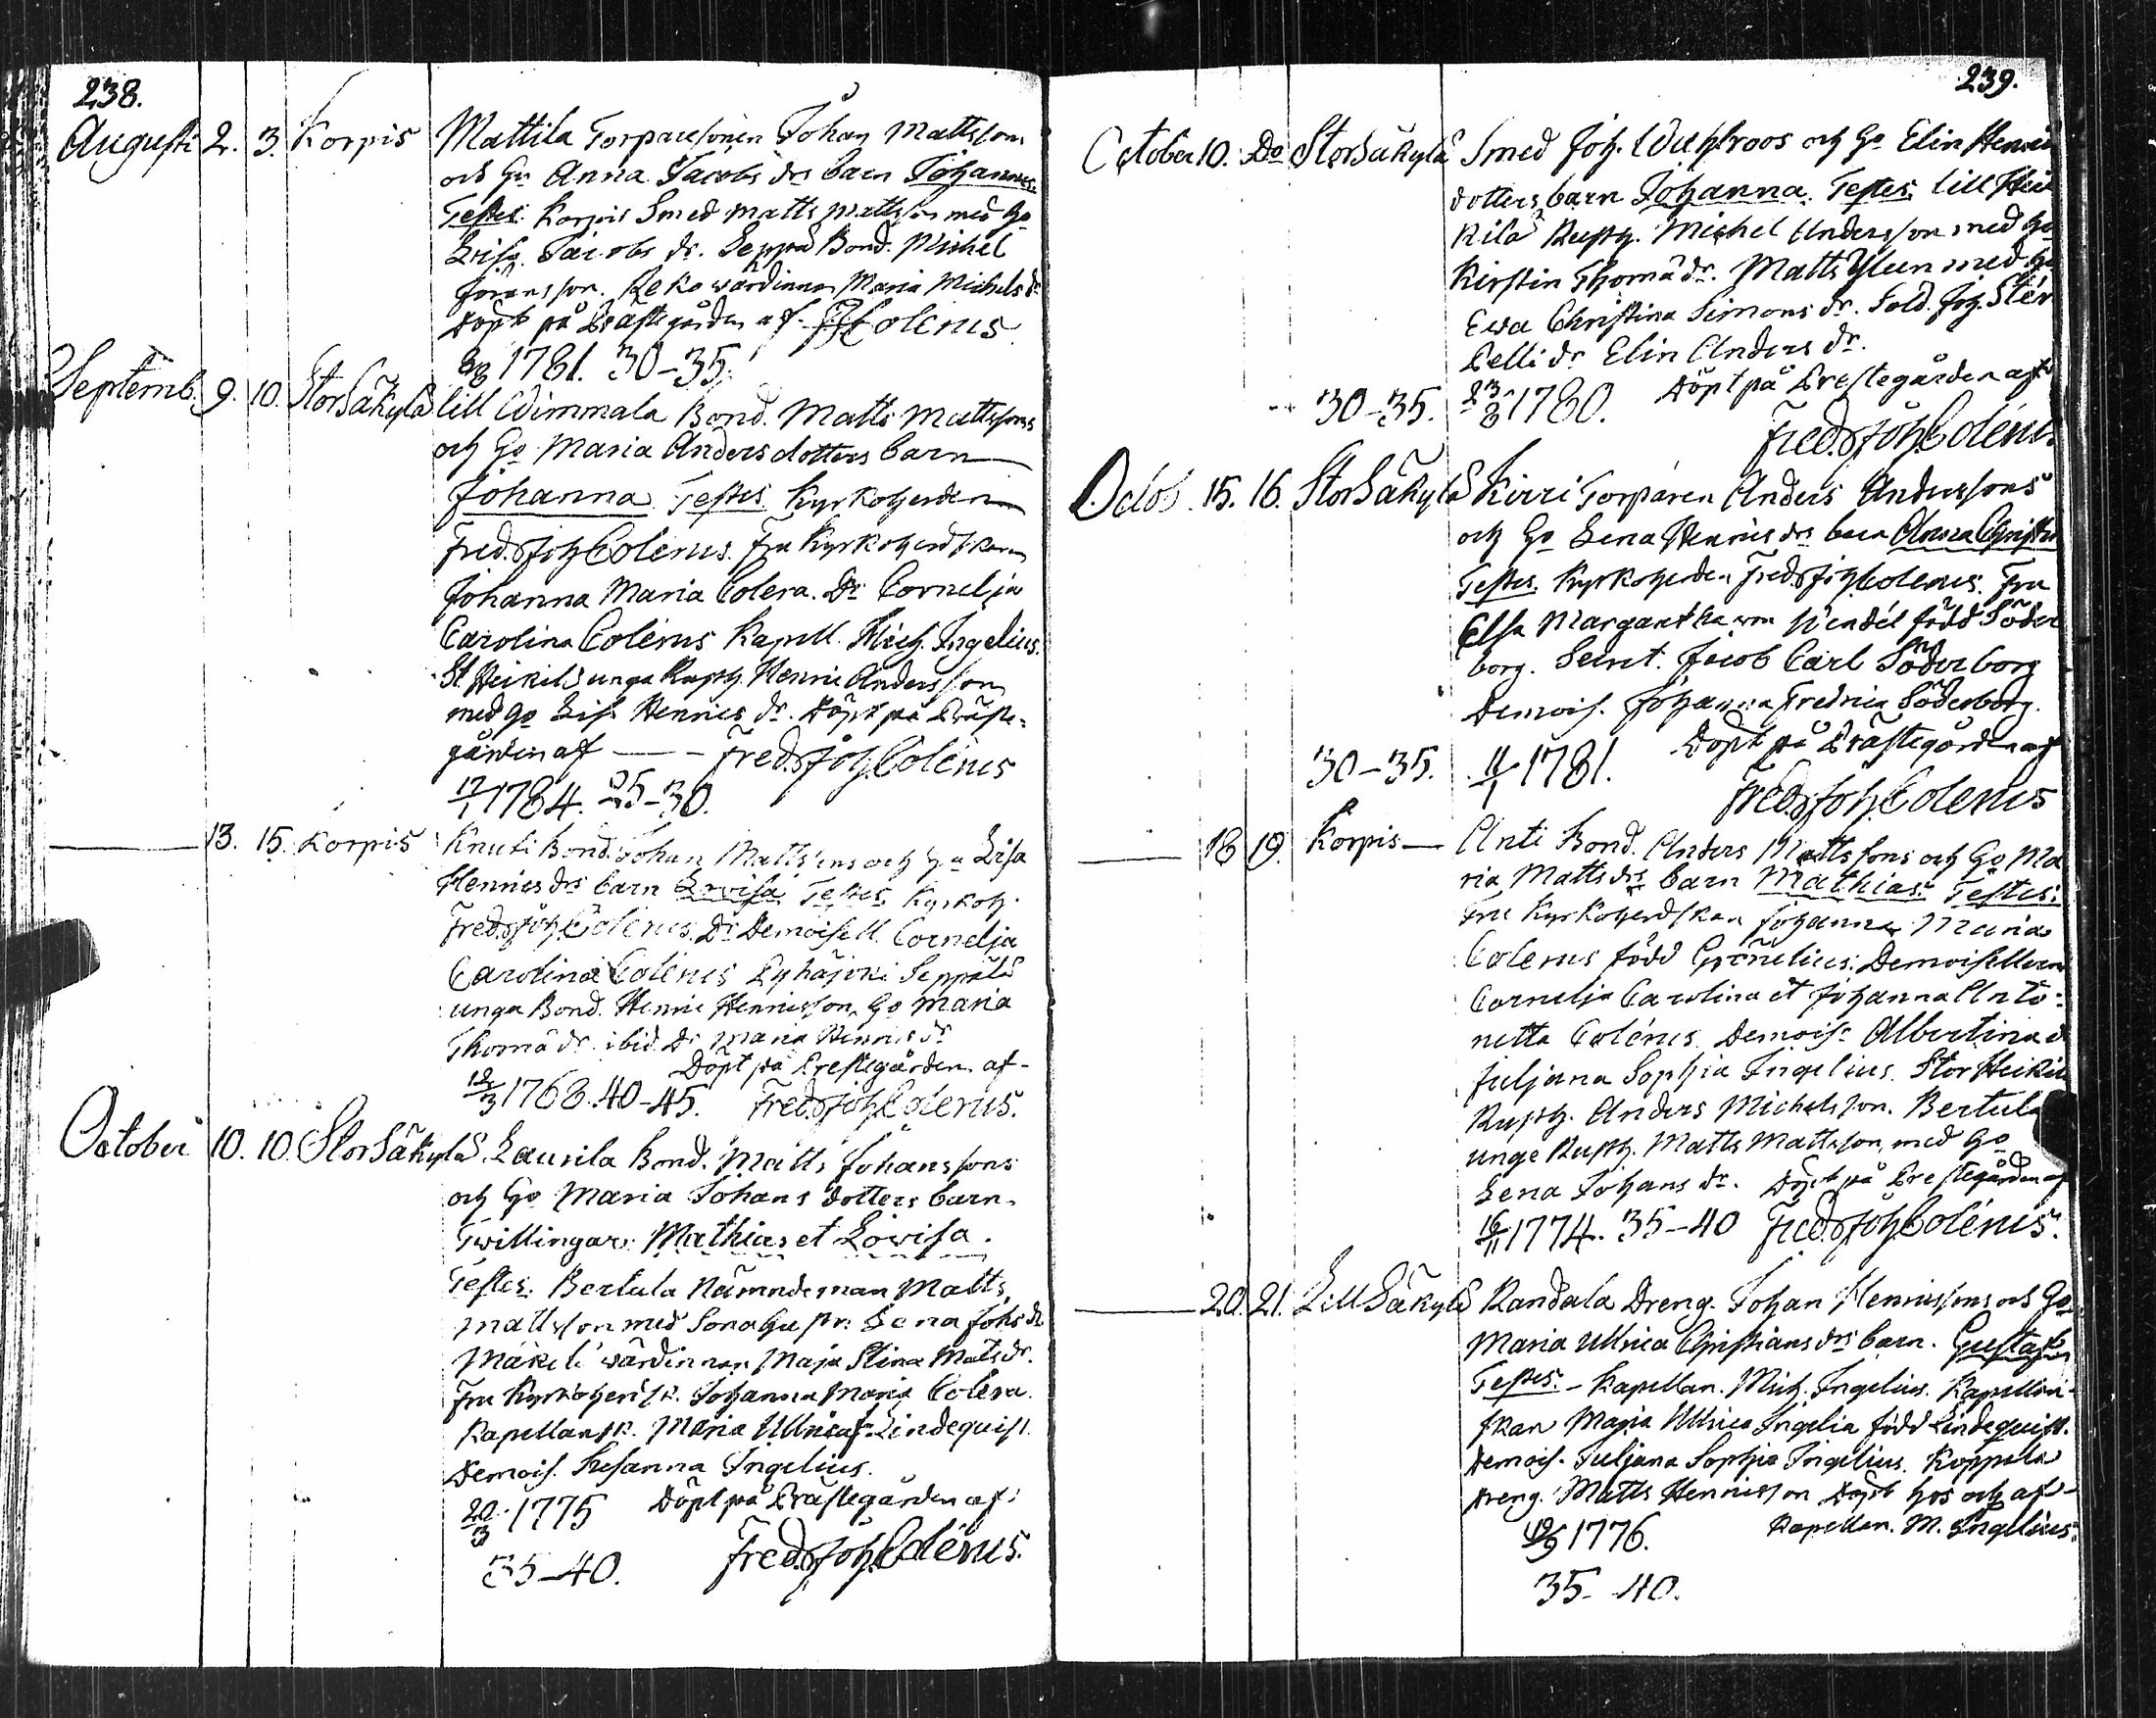 238.
Augusti 2. 3. Korpis Mattila Torparesonen Johan Mattssons
och Hu Anna Jacobs drs barn Johannes.
Testes: Korpis Smed Matts Mattsson med Ho
Lisa Jacobs dr. Seppä Bond. Michel
Göransson. Reko wärdinnan Maria Michels dr
Döpt på Prästegården af Colenus
1781. 30-35.
Septemb. 9. 10. StorSäkylä Lill Wimmala Bond. Matts Mattssons
och Ho Maria Andersdotters barn
Johanna Testes Kyrkoherden
Fred. Joh. Colenus. Fru Kyrkoherdskan
Johanna Maria Colera. Dr Cornelja
Carolina Colérus Kapell. Mich. Ingelius.
St. Heikilä unga Rusth. Henric Andersson
med Ho Lisa Henrics dr. Döpt på Präste-
gården af — Fred. Joh. Colénus
17/1 1784. 25-30.
13. 15. Korpis Knuti Bond. Johan Mattssons och Ho Lisa
Henrics drs barn Lovisa Testes Kyrkoh.
Fred. Joh. Colénus. Dr Demoisell. Cornelja
Carolina Colénus Pyhäjoki Seppälä
unga Bond. Henric Henricsson, Ho Maria
Thomä dr. ibid. Dr Maria Henrics dr
Döpt på Prestegården af-
12/3 1768. 40-45. Fred. Joh. Colenus.
October 10. 10. StorSäkylä. Laurila Bond. Matts Johanssons
och Ho Maria Johans dotters barn.
Twillingar: Mathias et Lovisa.
Testes: Bertula Nämndeman Matts
Mattsson med Sonahustr. Lena Johs dr
Mäkilä wärdinnan Maja Stina Mats dr.
Fru Kyrkoherdsk. Johanna Maria Coléra.
Kapellansk. Maria Ullrica Lindequist.
Demois. Susanna Ingelius.
20/3 1775 Döpt på Prästegården af:
35-40. Fred. Joh. Colénus.
239.
October 10. Do StorSäkylä Smed Joh. Widhroos och Ho Elin Henrics
dotters barn Johanna. Testes: Lill Hei
kilä Rusth. Michel Andersson med Ho
Kirstin Thomä dr. Matts Yleen med Ho
Ewa Christina Simons dr. Sold. Joh. Stén
Pelli dr Elin Anders dr.
30-35. 23/8 1780. Döpt på Prestegården af
Fred. Joh. Colénus
Octob. 15. 16. StorSäkylä Kirri Torparen Anders Anderssons
och Ho Lena Henrics drs barn Anna Christina
Testes. Kyrkoherden Fred. Joh. Colenus. Fru
Elsa Margaretha von Wendel född Söder
borg. Secret. Jacob Carl Söderborg
Demois. Johanna Fredrica Söderborg.
Döpt på Prästegården af
30-35. 11/1 1781.
Fred. Joh. Colenus
18 19. Korpis — Anti Bond. Anders Mattssons och Ho Ma
ria Matts drs barn Mathias. Testes:
Fru Kyrkoherdskan Johanna Maria
Colenus född Grönelius. Demoisellerna
Cornelja Carolina et Johanna Anto-
netta Colénus. Demois. Albertina et
Juljana Sophia Ingelius. Stor Heikilä
Rusth. Anders Michelsson. Bertula
unge Rusth. Matts Mattsson, med Ho
Lena Johans dr. Döpt på Prestegården af
16/11 1774. 35-40 Fred. Joh. Colénus.
20. 21. LillSäkylä Randala Dreng. Johan Henricssons och Ho
Maria Ullrica Christians drs barn. Gustaf
Testes. - Kapellan. Mich. Ingelius. Kapellan-
skan Maria Ullrica Ingelia född Lindequist.
Demois. Juljana Sophia Ingelius. Koppala
Dreng. Matts Henricsson Döpt hos och af-
Kapellan. M. Ingelius.
1776.
35-40.